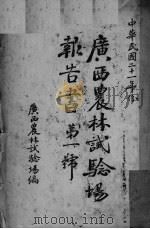 中華民國二十一年份
廣西農林試驗場
報告書第一號
廣西農林試驗場編